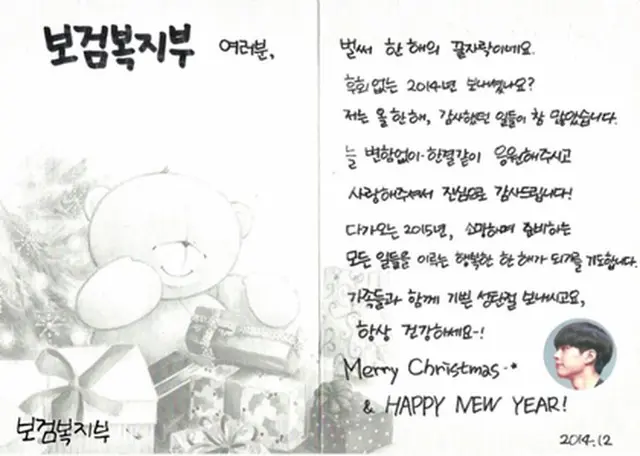 보검복지부 여러분,
벌써 한 해의 끝자락이네요.
후회 없는 2014년 보내셨나요?
저는 올 한해, 감사했던 일들이 참 많았습니다.
늘 변함없이·한결같이 응원해주시고
사랑해주셔서 진심으로 감사드립니다!
다가오는 2015년, 소망하며 준비하는
모든 일들을 이루는 행복한 한 해가 되기를 기도합니다.
가족들과 함께 기쁜 성탄절 보내시고요,
항상 건강하세요~!
Merry Christmas··*
& HAPPY NEW YEAR!
2014.12
보검복지부